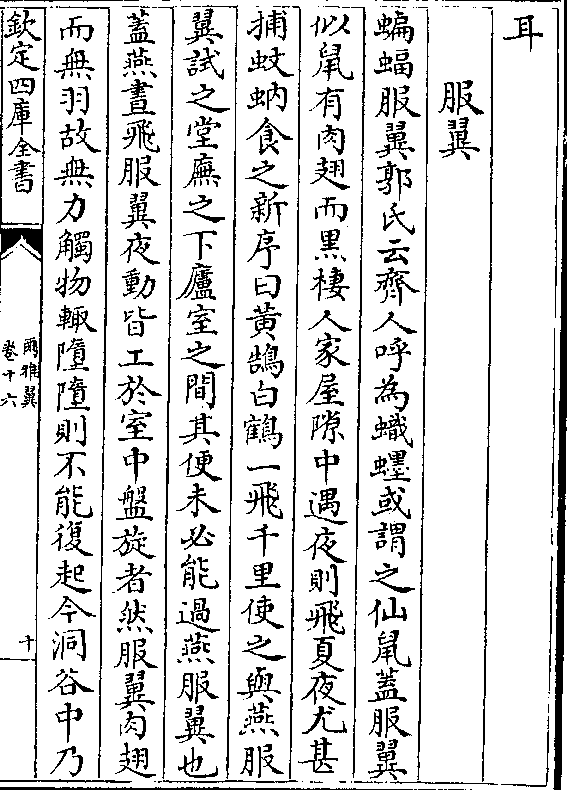 耳
服翼
蝙蝠服翼郭氏云齊人呼為蟙䘃或謂之仙鼠蓋服翼
似鼠有肉翅而黑棲人家屋隙中遇夜則飛夏夜尤甚
捕蚊蚋食之新序曰黃鵠白鶴一飛千里使之與燕服
翼試之堂廡之下廬室之間其便未必能過燕服翼也
蓋燕晝飛服翼夜動皆工於室中盤旋者然服翼肉翅
而無羽故無力觸物輒墮墮則不能復起今洞谷中乃
欽定四庫全書
爾雅翼
卷十六
十